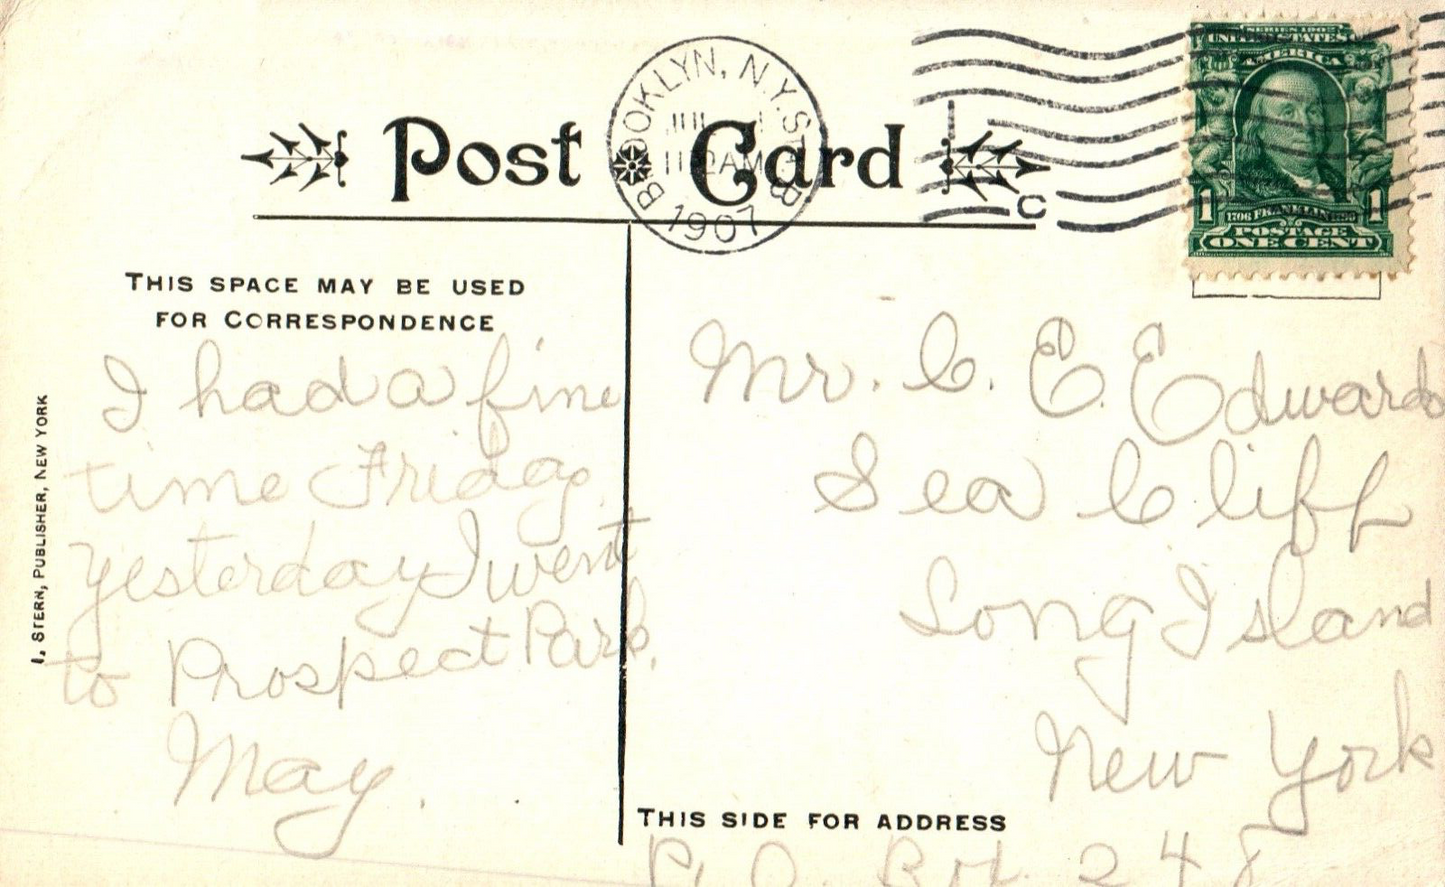 Post Card
BROOKLYN, N.Y. STA. B
JUL
11
AM
1907
C
SERIES 1902
UNITED STATES OF
AMERICA
1 1706 FRANKLIN 1790 1
POSTAGE
ONE CENT
THIS SPACE MAY BE USED
FOR CORRESPONDENCE
I had a fine
time Friday.
yesterday I went
to Prospect Park.
May.
Mr. C. E. Edwards
Sea Cliff
Long Island
New York
THIS SIDE FOR ADDRESS
P. O. Box 248
I. STERN, PUBLISHER, NEW YORK